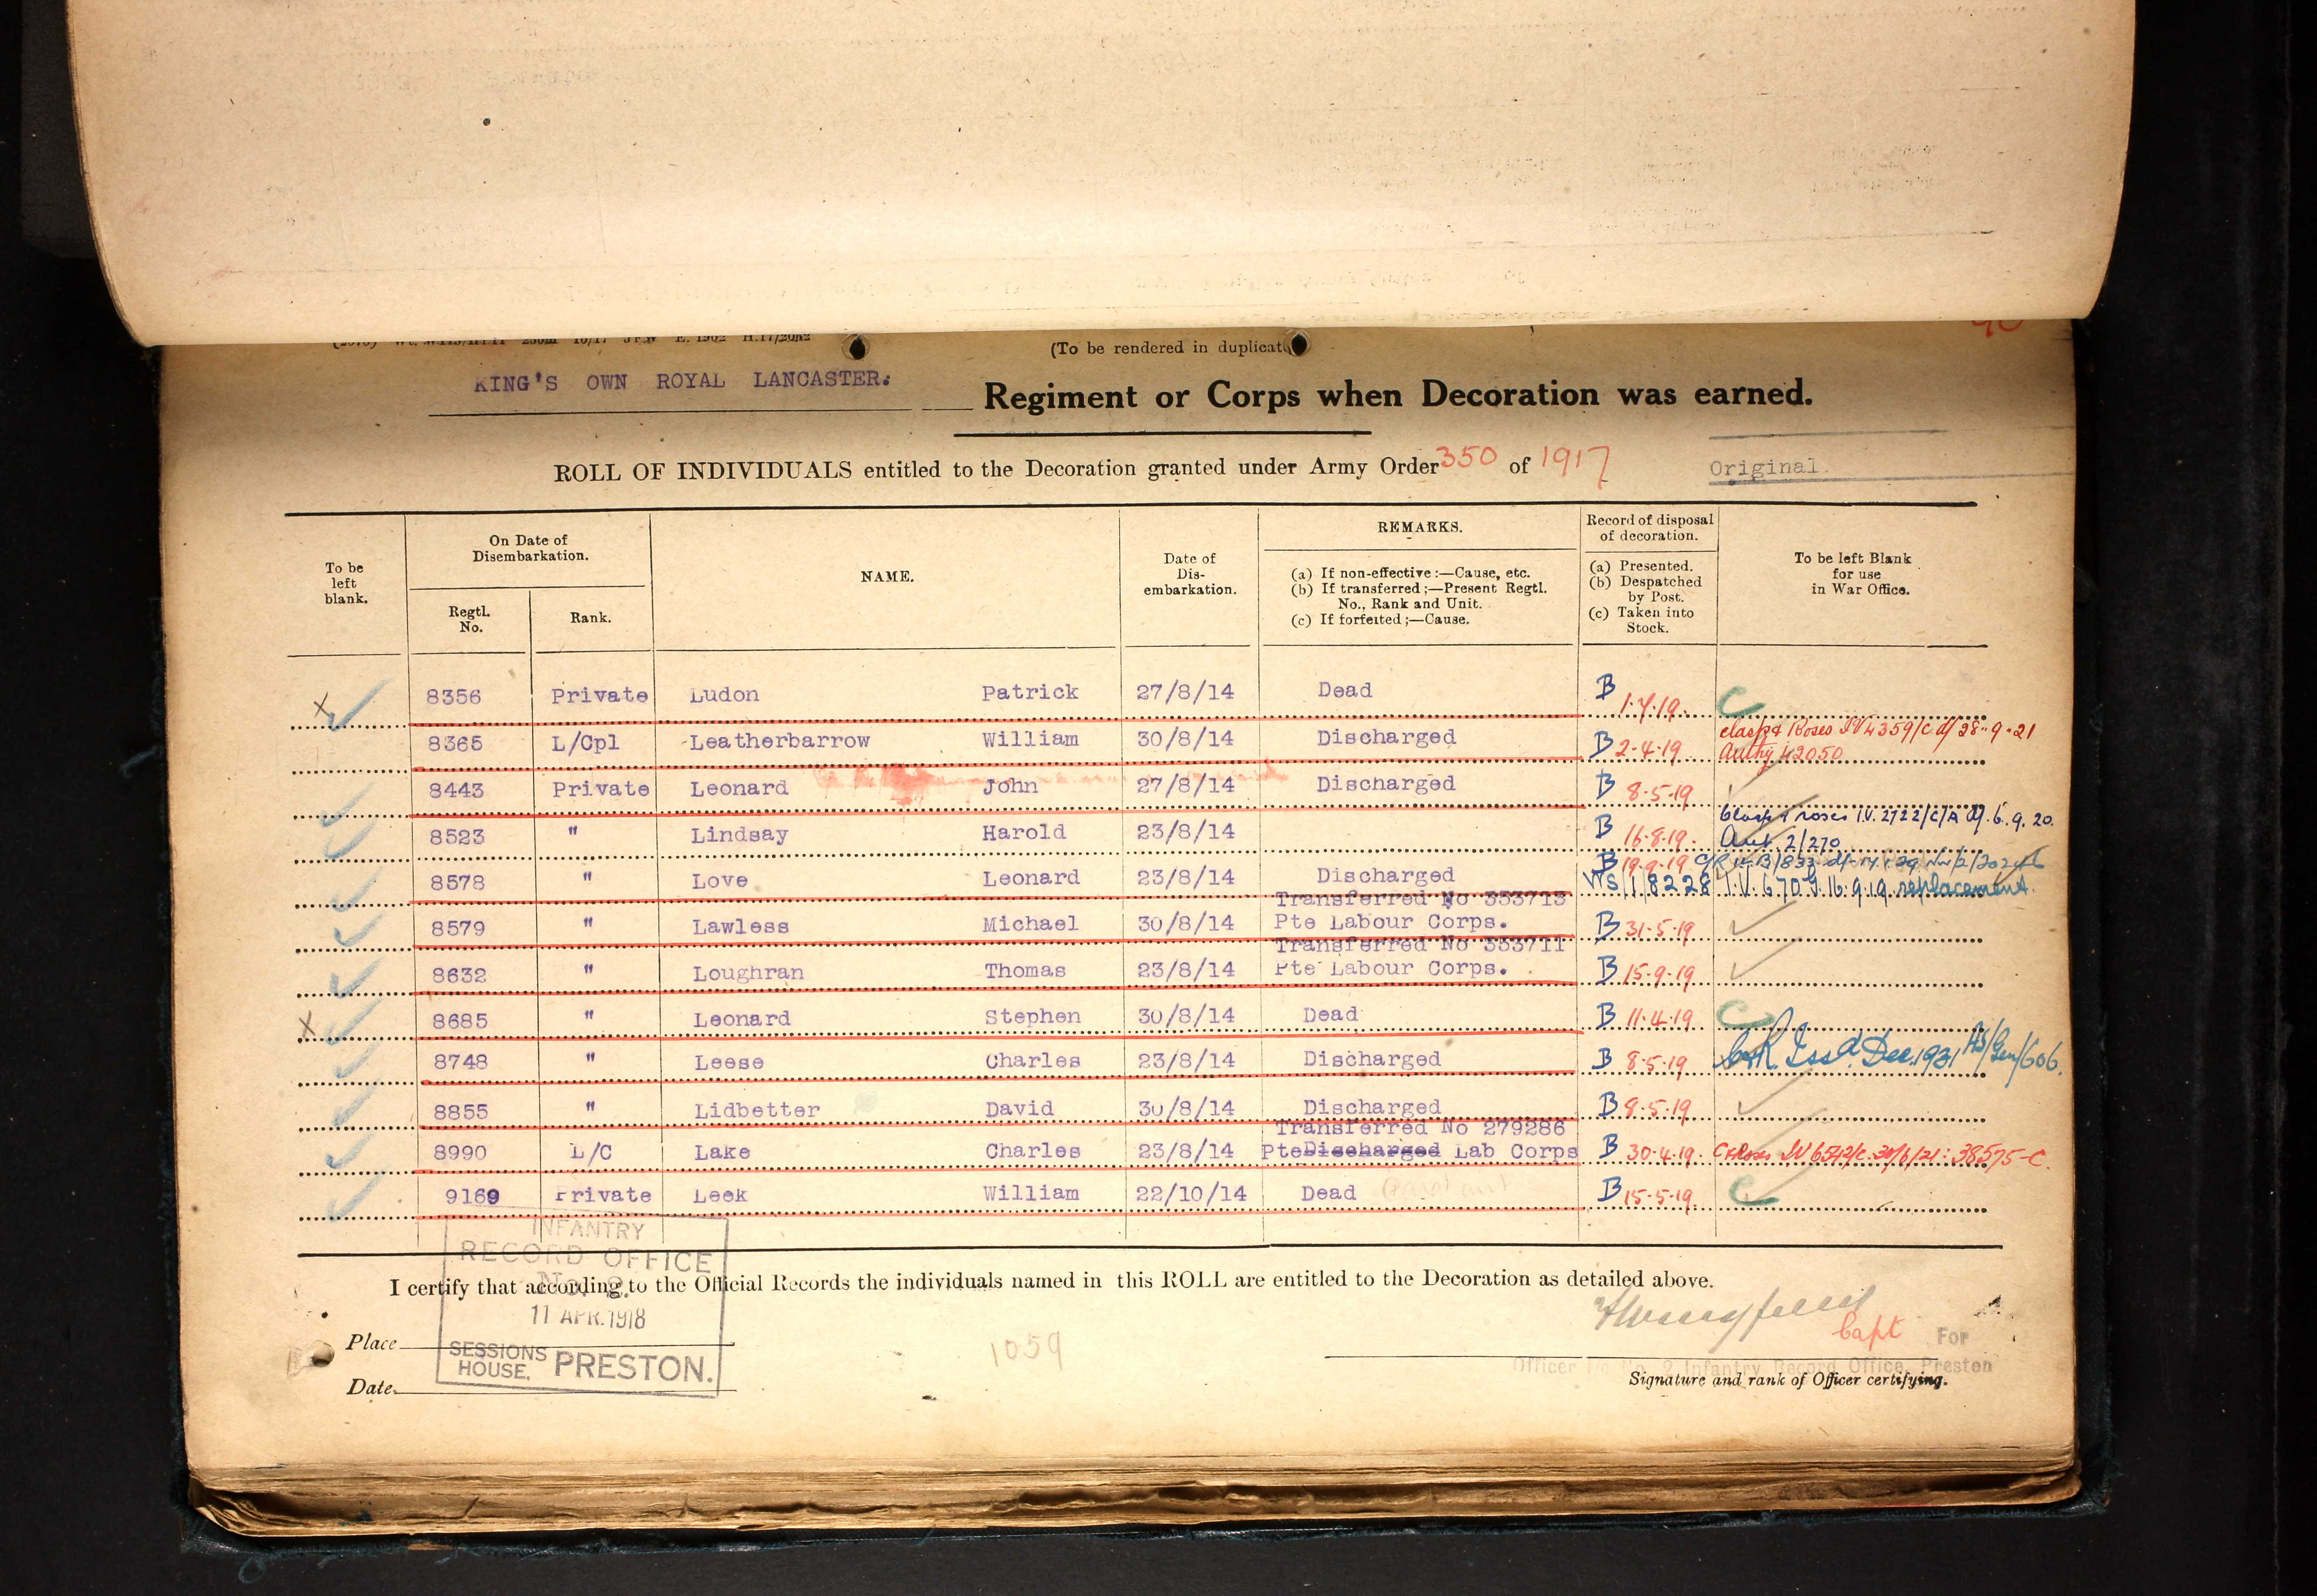 (To be rendered in duplicat
KING'S OWN ROYAL LANCASTER.
Regiment or Corps when Decoration was earned.
ROLL OF INDIVIDUALS entitled to the Decoration granted under Army Order 350 of 1917
Original.
To be left blank.
On Date of Disembarkation.
Regtl. No.
Rank.
NAME.
Date of Dis-embarkation.
REMARKS.
(a) If non-effective:—Cause, etc.
(b) If transferred;—Present Regtl. No., Rank and Unit.
(c) If forfeited;—Cause.
Record of disposal of decoration.
(a) Presented.
(b) Despatched by Post.
(c) Taken into Stock.
To be left Blank for use in War Office.
X 8356 Private Ludon Patrick 27/8/14 Dead B 1.7.19. C
8365 L/Cpl Leatherbarrow William 30/8/14 Discharged B 2.4.19 clasp & Roses IV 4359/C d/ 28.9.21
Authy 42050
8443 Private Leonard John 27/8/14 Discharged B 8.5.19
8523 " Lindsay Harold 23/8/14 B 16.8.19. Clasp & roses I.V. 2722/C/A d/. 6.9.20.
Aut 2/270
B 19.9.19
8578 " Love Leonard 23/8/14 Discharged WS 1 8228 I.V. 670 16.9.19 replacement.
Transferred No 353713
8579 " Lawless Michael 30/8/14 Pte Labour Corps. B 31.5.19
Transferred No 353711
8632 " Loughran Thomas 23/8/14 Pte Labour Corps. B 15.9.19
X 8685 " Leonard Stephen 30/8/14 Dead B 11.4.19 C
8748 " Leese Charles 23/8/14 Discharged B 8.5.19 C&R. Issd. Dec. 1931 /Gen/606.
8855 " Lidbetter David 30/8/14 Discharged B 8.5.19
Transferred No 279286
8990 L/C Lake Charles 23/8/14 Pte Discharged Lab Corps B 30.4.19. C&Roses IV 6542/C. 30/6/21: 38575-C.
9169 Private Leek William 22/10/14 Dead B 15.5.19. C
INFANTRY
RECORD OFFICE
No. 2.
I certify that according to the Official Records the individuals named in this ROLL are entitled to the Decoration as detailed above.
11 APR. 1918
Capt For
Place
SESSIONS HOUSE, PRESTON.
1059
Officer i/c No. 2 Infantry Record Office, Preston
Date
Signature and rank of Officer certifying.